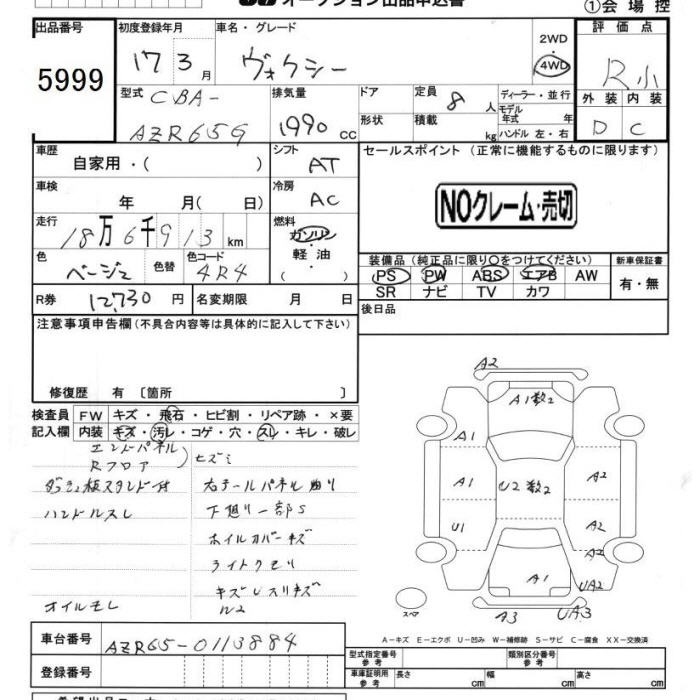 オークション出品申込書
①会場控
出品番号
5999
初度登録年月
17 3月
車名・グレード
ヴォクシー
2WD
・
4WD
評価点
R小
型式
CBA-
AZR65G
排気量
1990cc
ドア
形状
定員
8人
積載
kg
ディーラー・並行
モデル
年式 年
ハンドル 左・右
外装 内装
D C
車歴
自家用・( )
シフト
AT
セールスポイント (正常に機能するものに限ります)
NOクレーム・売切
車検
年 月( 日)
冷房
AC
走行
18万6千913km
燃料
ガソリン
・
軽油
・
( )
色
ベージュ
色替
色コード
4R4
装備品 (純正品に限り○をつけてください)
PS PW ABS エアB AW
SR ナビ TV カワ
新車保証書
有・無
R券
12,730円
名変期限 月 日
後日品
注意事項申告欄(不具合内容等は具体的に記入して下さい)
修復歴 有 〔箇所
検査員
記入欄
FW キズ・飛石・ヒビ割・リペア跡・×要
内装 キズ・汚レ・コゲ・穴・スレ・キレ・破レ
エンドパネル
Rフロア
ヒズミ
ダッシュ板スタンド付
右テールパネル曲り
ハンドルスレ
下廻り一部S
ホイルカバーキズ
ライトクモリ
キズUスリキズ
オイルモレ
A2
A1数2
A1
A1
U1
U2数2
A2
A2
A2
UA2
A1
A3
UA3
スペア
A-キズ E-エクボ U-凹み W-補修跡 S-サビ C-腐食 XX-交換済
車台番号
AZR65-0113884
登録番号
型式指定番号
参考
類別区分番号
参考
車庫証明用
参考
長さ cm 幅 cm 高さ cm